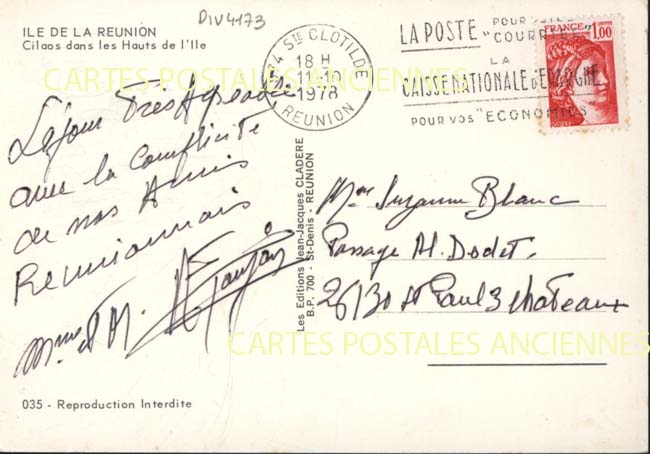 DIV4173
ILE DE LA REUNION
Cilaos dans les Hauts de l'Ile
974 STE CLOTILDE
18 H
1978
REUNION
LA POSTE
POUR VOTRE
"COURRIER"
LA
CAISSE NATIONALE D'EPARGNE
POUR VOS "ECONOMIES
FRANCE
1,00
CARTES POSTALES ANCIENNES
Séjour Très Agréable
avec la Complicité
de nos Amis
Réunionnais
Mme et M.
Les Editions Jean-Jacques CLADERE
B.P. 700 - St-Denis - REUNION
Mme Suzanne Blanc
Passage M. Dodet.
26130 St Paul 3 chateaux
CARTES POSTALES ANCIENNES
035 - Reproduction Interdite